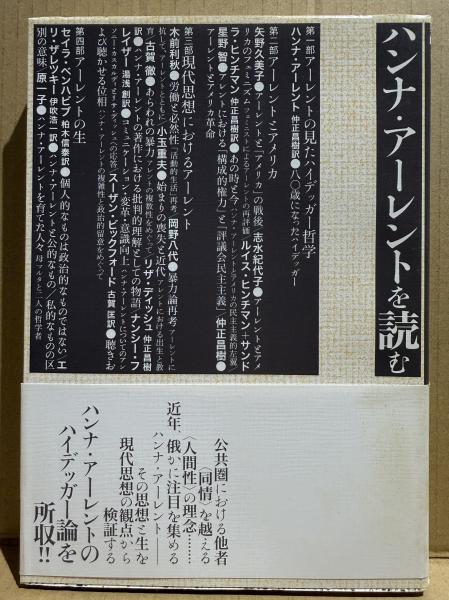 ハンナ・アーレントを読む
第一部 アーレントの見たハイデッガー哲学
ハンナ・アーレント 仲正昌樹訳●八〇歳になったハイデッガー
第二部 アーレントとアメリカ
矢野久美子●アーレントと「アメリカ」の戦後 志水紀代子●アーレントとアメ
リカのフェミニズム フェミニストによるアーレントの再評価 ルイス・ヒンチマン＋サンド
ラ・ヒンチマン 仲正昌樹訳●あの時と今 ハンナ・アーレントとアメリカの民主主義的左翼
星野 智●アーレントにおける「構成的権力」と「評議会民主主義」 仲正昌樹●
アーレントとアメリカ革命
第三部 現代思想におけるアーレント
木前利秋●労働と必然性 『活動的生活』再考 岡野八代●暴力論再考 アーレントに
抗して、アーレントとともに 小玉重夫●始まりの喪失と近代 アレントにおける出生と教
育 古賀 徹●あらわれの暴力 アレントの複数性をめぐって リザ・ディッシュ 仲正昌樹
訳●ハンナ・アーレントの著作における批判的理解としての物語 ナンシー・フ
レイザー 湯浅 創訳●コミュニケーション・変革・意識向上 ハンナ・アーレントについてのアン
ソニー・カスカルディとリサ・ディッシュへの応答 スーザン・ビックフォード 古賀 匡訳●聴きお
よび聴かせる位相 ハンナ・アーレントの複雑性と政治的留意をめぐって
第四部 アーレントの生
セイラ・ベンハビブ 柏木信泰訳●個人的なものは政治的なものではない エ
リ・ザレツキー 伊吹浩一訳●ハンナ・アーレントと公的なもの／私的なものの区
別の意味 原 一子●ハンナ・アーレントを育てた人々 母マルタと一人の哲学者
公共圏における他者
〈同情〉を越える
〈人間性〉の理念……
近年、俄かに注目を集める
ハンナ・アーレント――
その思想と生を
現代思想の観点から
検証する
ハンナ・アーレントの
ハイデッガー論を
所収!!